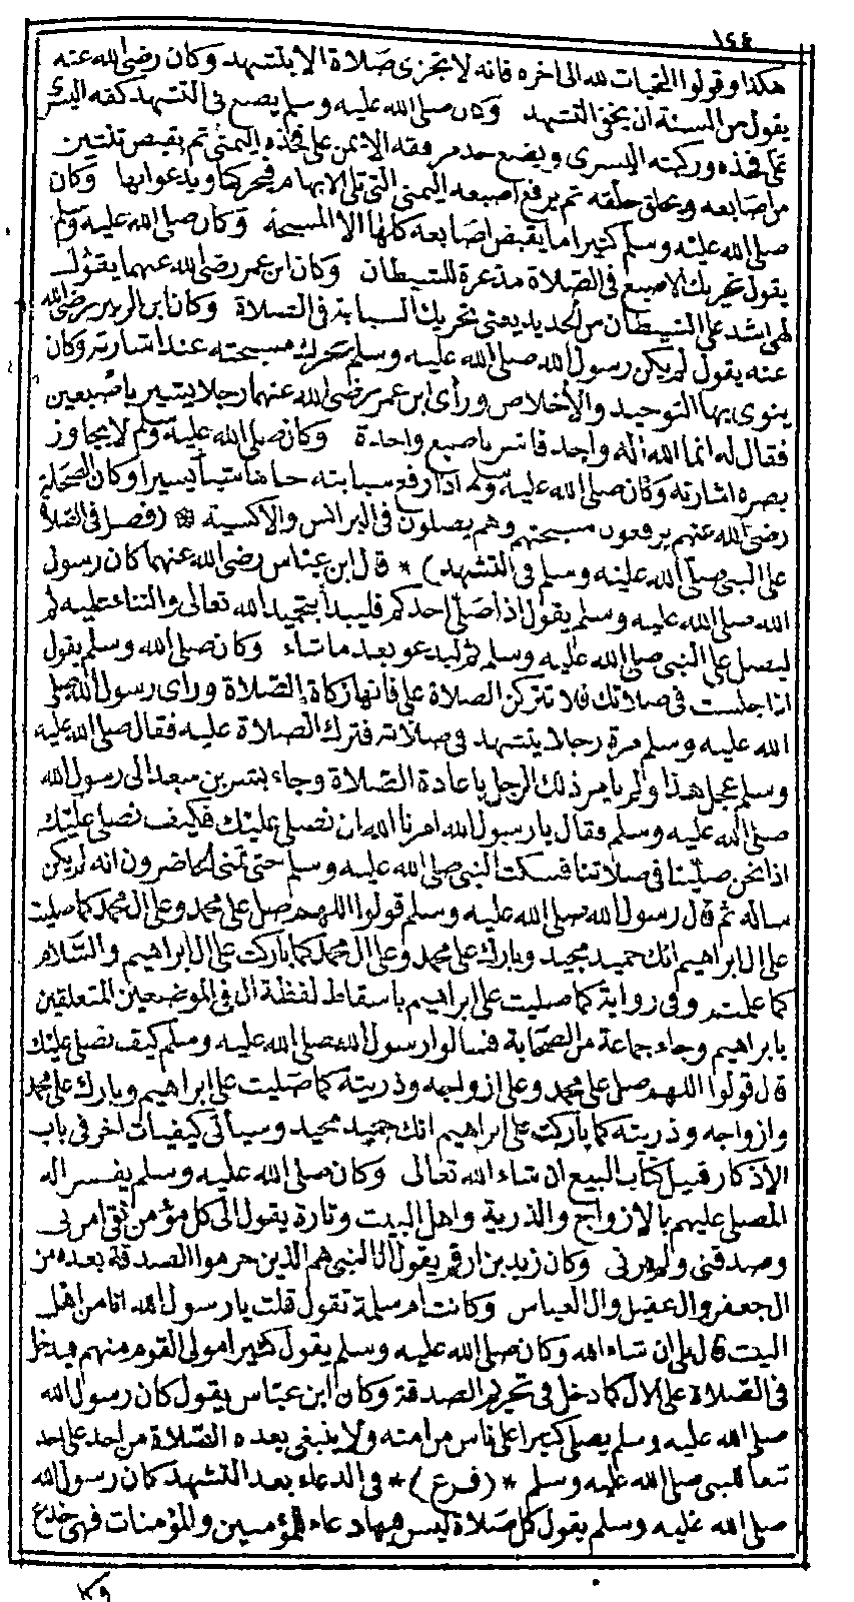 ١٤٤
هكذا وقولوا التحيات لله الى اخره فانه لا تجزى صلاة الا بتشهد وكان رضى الله عنه
يقول من السنة ان يخفى التشهد وكان صلى الله عليه وسلم يضع فى التشهد كفه اليسرى
على فخذه وركبته اليسرى ويضع حد مرفقه الايمن على فخذه اليمنى ثم يقبض ثنتين
من اصابعه ويحلق حلقه ثم يرفع اصبعه اليمنى التى تلى الابهام فيحركها ويدعوا بها وكان
صلى الله عليه وسلم كثيرا ما يقبض اصابعه كلها الا المسبحة وكان صلى الله عليه وسلم
يقول تحريك الاصبع فى الصلاة مذعرة للشيطان وكان ابن عمر رضى الله عنهما يقول
لهى اشد على الشيطان من الحديد يعنى تحريك السبابة فى الصلاة وكان ابن الزبير رضى الله
عنه يقول لم يكن رسول الله صلى الله عليه وسلم يحرك مسبحته عند اشارته وكان
ينوى بها التوحيد والأخلاص ورأى ابن عمر رضى الله عنهما رجلا يشير باصبعين
فقال له انما الله اله واحد فاشر باصبع واحدة وكان صلى الله عليه وسلم لا يجاوز
بصره اشارته وكان صلى الله عليه وسلم اذا رفع سبابته حناها شيأ يسيرا وكان الصحابة
رضى الله عنهم يرفعون مسبحتهم وهم يصلون فى البرانس والأكسية * (فصل فى الصلاة
على النبى صلى الله عليه وسلم فى التشهد) * قال ابن عباس رضى الله عنهما كان رسول
الله صلى الله عليه وسلم يقول اذا صلى احدكم فليبدأ بتحميد الله تعالى والثناء عليه ثم
ليصل على النبى صلى الله عليه وسلم ثم ليدعو بعد ما شاء وكان صلى الله وسلم يقول
اذا جلست فى صلاتك فلا تتركن الصلاة على فانها زكاة الصلاة ورأى رسول الله صلى
الله عليه وسلم مرة رجلا يتشهد فى صلاته فترك الصلاة عليه فقال صلى الله عليه
وسلم عجل هذا ولم يامر ذلك الرجل باعادة الصلاة وجاء بشر بن سعد الى رسول الله
صلى الله عليه وسلم فقال يا رسول الله امرنا الله ان نصلى عليك فكيف نصلى عليك
اذا نحن صلينا فى صلاتنا فسكت النبى صلى الله عليه وسلم حتى تمنى الحاضرون انه لم يكن
ساله ثم قال رسول الله صلى الله عليه وسلم قولوا اللهم صل على محمد وعلى ال محمد كما صليت
على ال ابراهيم انك حميد مجيد وبارك على محمد وعلى ال محمد كما باركت على ال ابراهيم والسلام
كما علمتم وفى رواية كما صليت على ابراهيم باسقاط لفظة ال فى الموضعين المتعلقين
بابراهيم وجاء جماعة من الصحابة فسالوا رسول الله صلى الله عليه وسلم كيف نصلى عليك
قال قولوا اللهم صل على محمد وعلى ازواجه وذريته كما صليت على ابراهيم وبارك على محمد
وازواجه وذريته كما باركت على ابراهيم انك حميد مجيد وسيأتى كيفيات اخر فى باب
الاذكار قبيل كتاب البيع ان شاء الله تعالى وكان صلى الله عليه وسلم يفسر اله
المصلى عليهم بالازواج والذرية واهل البيت وتارة يقول الى كل مؤمن تقى امن بى
وصدقنى ولم يرنى وكان زيد بن ارقم يقول ال النبى هم الذين حرموا الصدقة بعده من
ال جعفر وال عقيل وال العباس وكانت ام سلمة تقول قلت يا رسول الله انا من اهل
البيت قال بلى ان شاء الله وكان صلى الله عليه وسلم يقول كثيرا مولى القوم منهم فيدخل
فى الصلاة على الال كما دخل فى تحريم الصدقة وكان ابن عباس يقول كان رسول الله
صلى الله عليه وسلم يصلى كثيرا على ناس من امته ولا ينبغى بعده الصلاة من احد على احد
تبعا للنبى صلى الله عليه وسلم * (فرع) * فى الدعاء بعد التشهد كان رسول الله
صلى الله عليه وسلم يقول كل صلاة ليس فيها دعاء للمؤمنين والمؤمنات فهى خداج
وكا